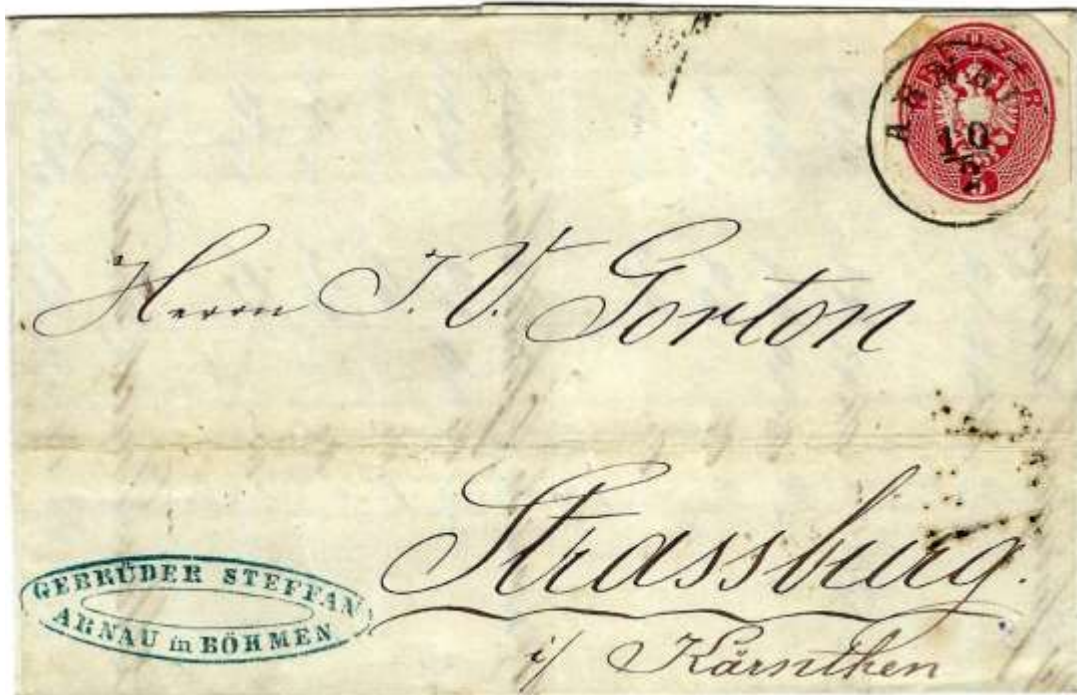 KREUZER
5
ARNAU
10
Herrn J. V. Gorton
Strassburg.
i/ Kärnthen
GEBRÜDER STEFFAN
ARNAU in BÖHMEN